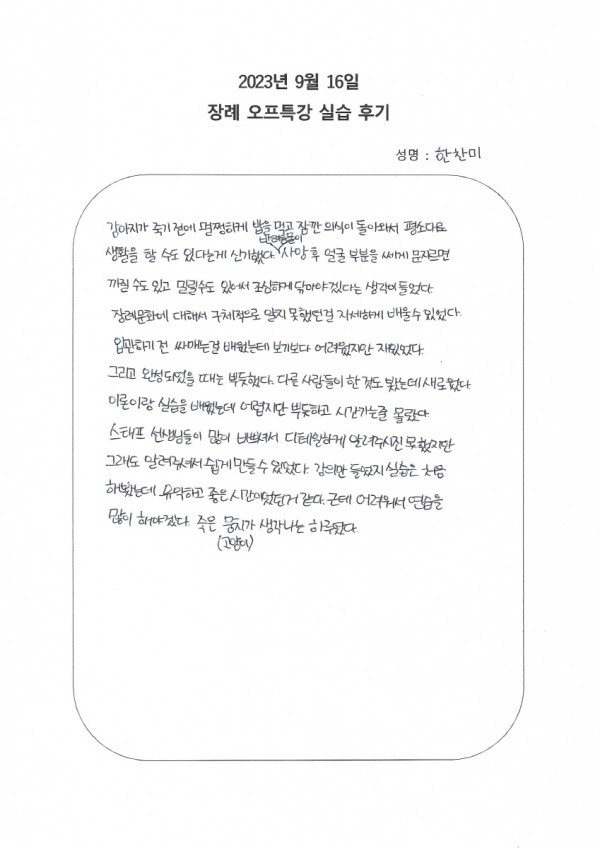 2023년 9월 16일
장례 오프특강 실습 후기
성명 : 한찬미
강아지가 죽기 전에 멀쩡하게 밥을 먹고 잠깐 의식이 돌아와서 평소대로
생활을 할 수도 있다는게 신기했다. 반려동물이 사망 후 얼굴 부분을 쎄게 문지르면
까질 수도 있고 밀릴수도 있어서 조심하게 닦아야겠다는 생각이 들었다.
장례문화에 대해서 구체적으로 알지 못했던걸 자세하게 배울수 있었다.
입관하기 전 싸매는걸 배웠는데 보기보다 어려웠지만 재밌었다.
그리고 완성되었을 때는 뿌듯했다. 다른 사람들이 한 것도 봤는데 새로웠다
이론이랑 실습을 배웠는데 어렵지만 뿌듯하고 시간가는줄 몰랐다
스태프 선생님들이 많이 바쁘셔서 디테일하게 알려주시진 못했지만
그래도 알려주셔서 쉽게 만들수 있었다. 강의만 들었지 실습은 처음
해봤는데 유익하고 좋은 시간이었던거 같다. 근데 어려워서 연습을
많이 해야겠다. 죽은 뭉치가 생각나는 하루였다.
(고양이)